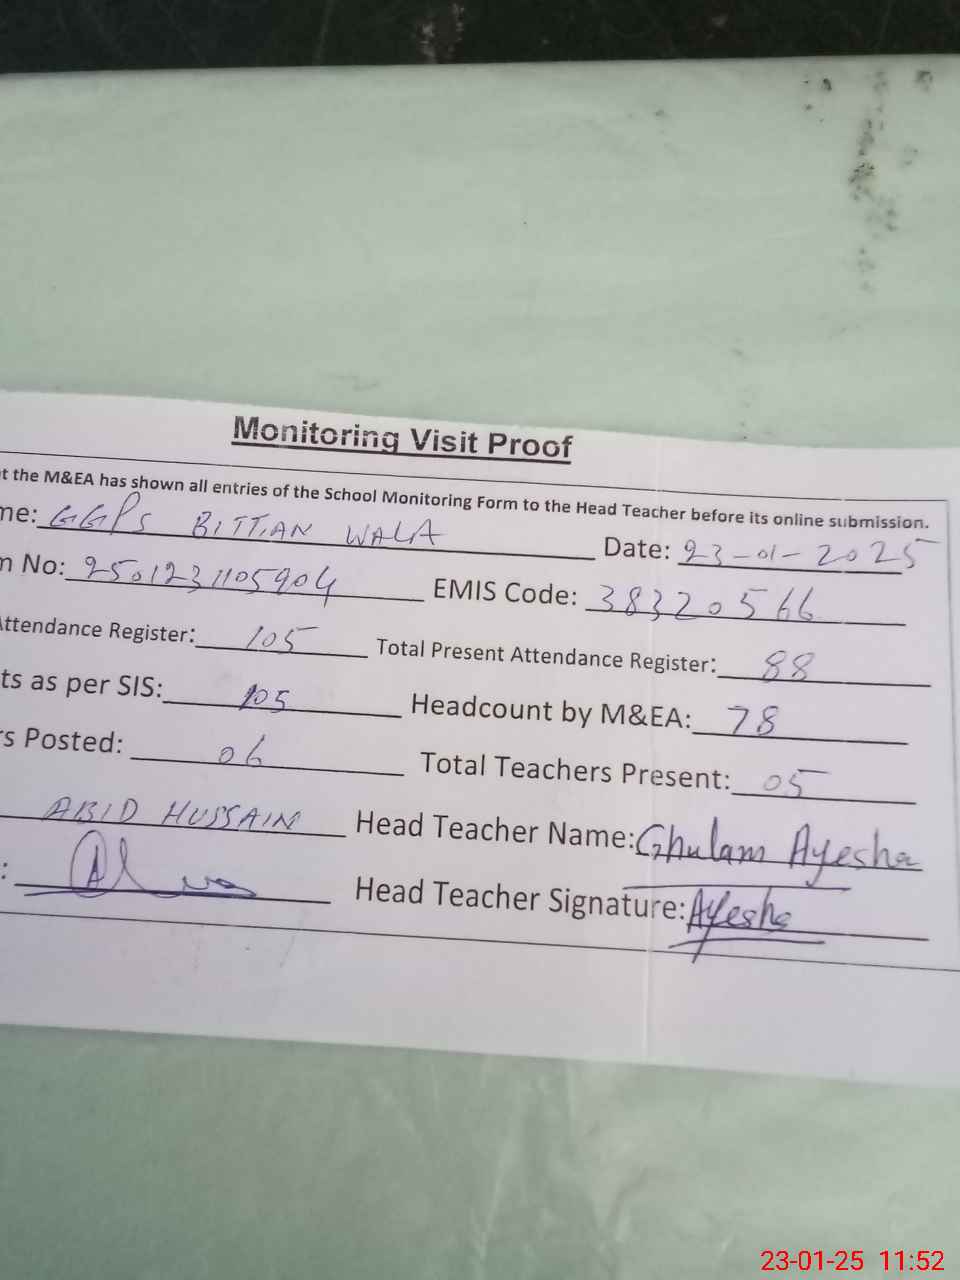 Monitoring Visit Proof
t the M&EA has shown all entries of the School Monitoring Form to the Head Teacher before its online submission.
me: GGPS BITTIAN WALA Date: 23-01-2025
n No: 2501231105904 EMIS Code: 38320566
Attendance Register: 105 Total Present Attendance Register: 88
ts as per SIS: 105 Headcount by M&EA: 78
rs Posted: 06 Total Teachers Present: 05
ABID HUSSAIN Head Teacher Name: Ghulam Ayesha
: Head Teacher Signature: Ayesha
23-01-25 11:52